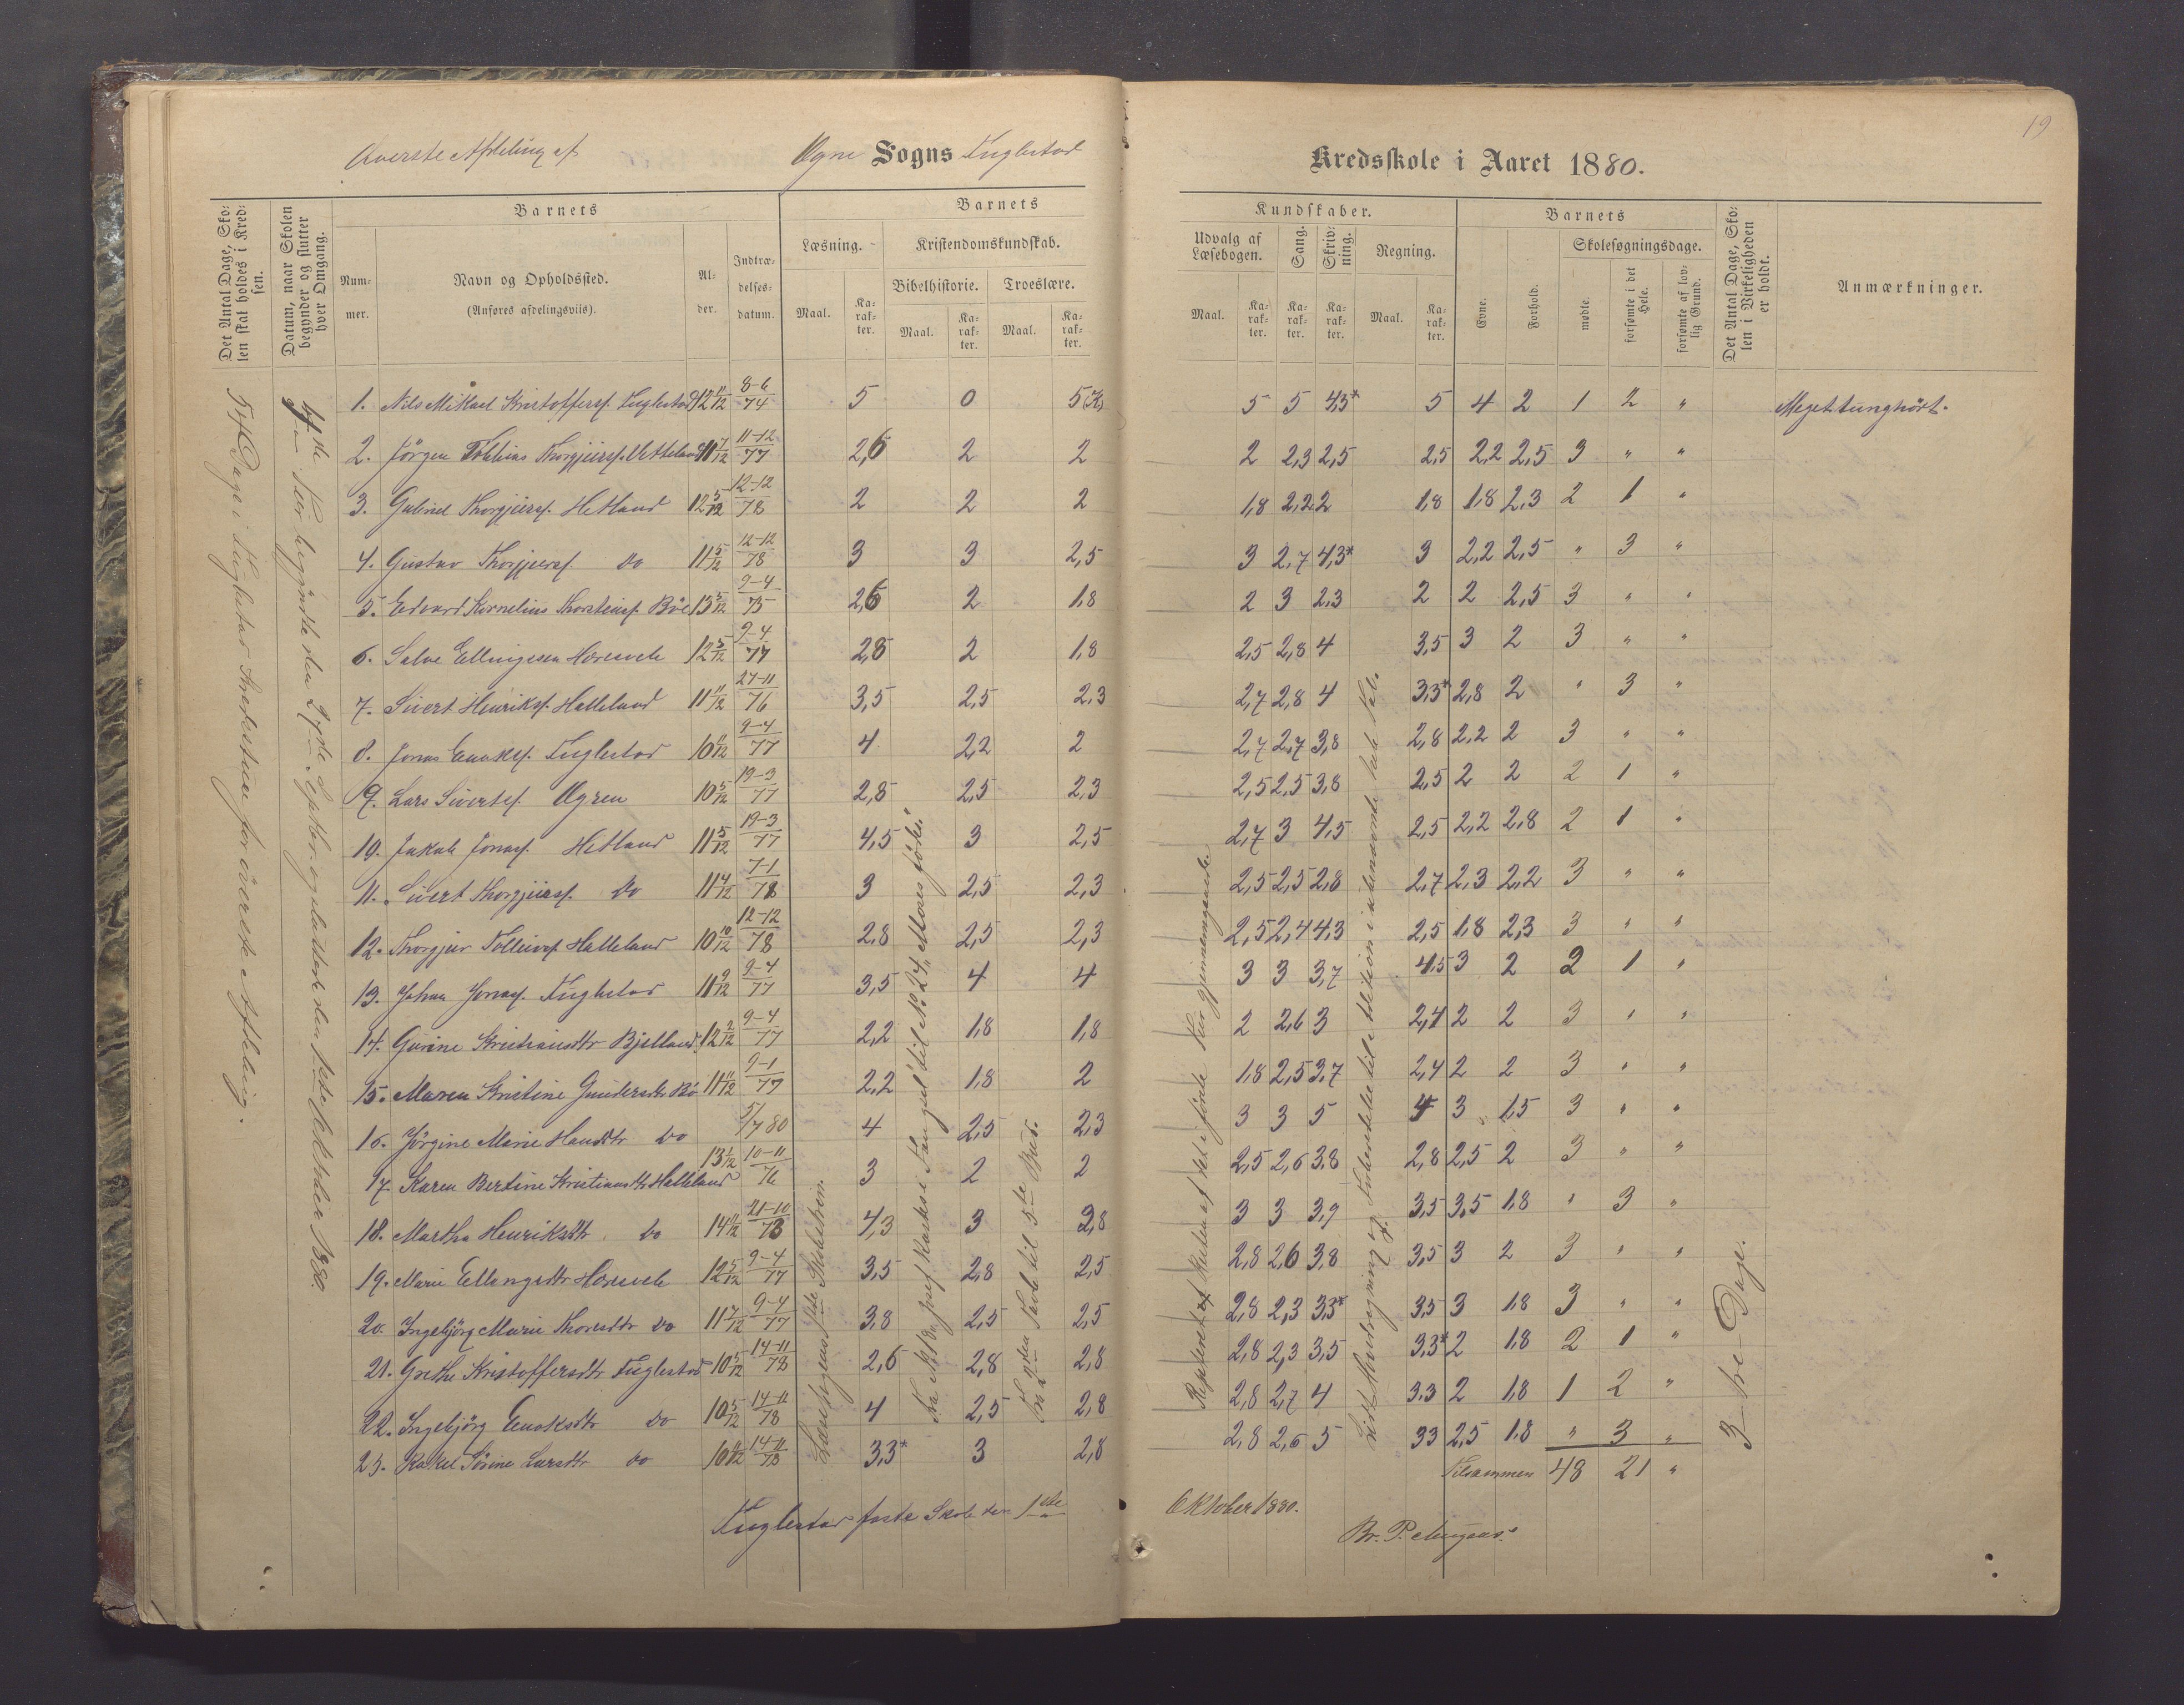 19
Øverste Afdeling af Ogne Sogns Fuglestad Kredsskole i Aaret 1880.
Det Antal Dage, Skolen skal holdes i Kredsen.
Datum, naar Skolen begynder og slutter hver Omgang.
Barnets
Nummer.
Navn og Opholdssted.
(Anføres afdelingsviis).
Alder.
Indtrædelsesdatum.
Barnets Kundskaber.
Læsning.
Maal. Karakter.
Kristendomskundskab.
Bibelhistorie.
Maal. Karakter.
Troeslære.
Maal. Karakter.
Udvalg af Læsebogen.
Maal. Karakter.
Sang.
Karakter.
Skrivning.
Karakter.
Regning.
Maal. Karakter.
Barnets
Evne.
Forhold.
Skolesøgningsdage.
mødte.
forsømte i det Hele.
forsømte af lovlig Grund.
Det Antal Dage, Skolen i Virkeligheden er holdt.
Anmærkninger.
54 Dage i Fuglestad Skolestue for øverste Afdeling.
begyndte den 27de Septbr. og sluttede den 1ste Oktober 1880
1. Nils Mikael Kristoffersf. Fuglestad 12 11/12 8-6/74 5 0 5 5 5 4,3* 5 4 2 1 2 " Meget tunghørt.
2. Jörgen Thorgjeirsf. 11 7/12 11-12/77 2,6 2 2 2 2,3 2,5 2,5 2,2 2,5 3 " "
3. Gabriel Thorgjeirsf. Hetland 12 5/12 12-12/78 2 2 2 1,8 2,2 2 1,8 1,8 2,3 2 1 "
4. Gustav Thorgjeirsf. Do 11 5/12 12-12/78 3 3 2,5 3 2,7 4,3* 3 2,2 2,5 " 3 "
5. Edvard Kornelius Thorsteinsf. Böe 13 5/12 9-4/75 2,6 2 1,8 2 3 2,3 2 2 2,5 3 " "
6. Salve Ellingsen 12 5/12 9-4/77 2,8 2 1,8 2,5 2,8 4 3,5 3 2 3 " "
7. Sivert Henriksf. Halleland 11 11/12 27-11/76 3,5 2,5 2,3 2,7 2,8 4 3,3* 2,8 2 " 3 "
8. Jonas Enoksf. Fuglestad 10 11/12 9-4/77 4 2,2 2 2,7 2,7 3,8 2,8 2,2 2 3 " "
9. Lars Sivertsf. Ogren 10 5/12 19-3/77 2,8 2,5 2,3 2,5 2,5 3,8 2,5 2 2 2 1 "
10. Jakob Jonasf. Hetland 11 5/12 19-3/77 4,5 3 2,5 2,7 3 4,5 2,5 2,2 2,8 2 1 "
11. Sivert Thorgjeirsf. Do 11 4/12 7-1/78 3 2,5 2,3 2,5 2,5 2,8 2,7 2,3 2,2 3 " "
12. Thorgjer Tolleivsf. Halleland 10 10/12 12-12/78 2,8 2,5 2,3 2,5 2,4 4,3 2,5 1,8 2,3 3 " "
13. Johan Jonasf. Fuglestad 11 9/12 9-4/77 3,5 4 4 3 3 3,7 4,5 3 2 2 1 "
14. Gurine Kristiansdtr Bjelland 12 2/12 9-4/77 2,2 1,8 1,8 2 2,6 3 2,4 2 2 3 " "
15. Maren Kristine Gundersdtr Bö 11 11/12 9-1/77 2,2 1,8 2 1,8 2,5 3,7 2,4 2 2 3 " "
16. Jörgine Marie Hansdtr Do 5/7 80 4 2,5 2,3 3 3 5 4 3 1,5 3 " "
17. Karen Bertine Kristiansdtr Halleland 13 1/12 10-11/76 3 2 2 2,5 2,6 3,8 2,8 2,5 2 3 " "
18. Martha Henriksdtr Do 14 11/12 21-10/73 4,3 3 2,8 3 3 3,9 3,5 3,5 1,8 " 3 "
19. Marie Ellingsdtr 12 5/12 9-4/77 3,5 2,8 2,5 2,8 2,6 3,8 3,5 3 2 3 " "
20. Ingebjörg Marie Thoresdtr Do 11 7/12 9-4/77 3,8 2,5 2,5 2,8 2,3 3,3* 3,5 3 1,8 3 " "
21. Grethe Kristoffersdtr Fuglestad 10 5/12 14-11/78 2,6 2,8 2,8 2,8 2,3 3,5 3,3* 2 1,8 2 1 "
22. Ingebjörg Enoksdtr Do 10 5/12 14-11/78 4 2,5 2,8 2,8 2,7 4 3,3 2 1,8 1 2 "
23. Rakel Sörine Larsdtr Do 10 11/12 14-11/78 3,3* 3 2,8 2,8 2,6 5 3,3 2,5 1,8 " 3 "
Læsebogens 1ste Skoletrin.
Fra № 18 "Josef kastes i Fængsel" til № 24 "Moses föhes."
Fra 2den Tavle til 5te Bud.
Repeteret af det i förste Kur gjennemgaaede.
3 - tre - Dage.
Tilsammen 48 21 "
Fuglestad faste Skole den 1ste Oktober 1880.